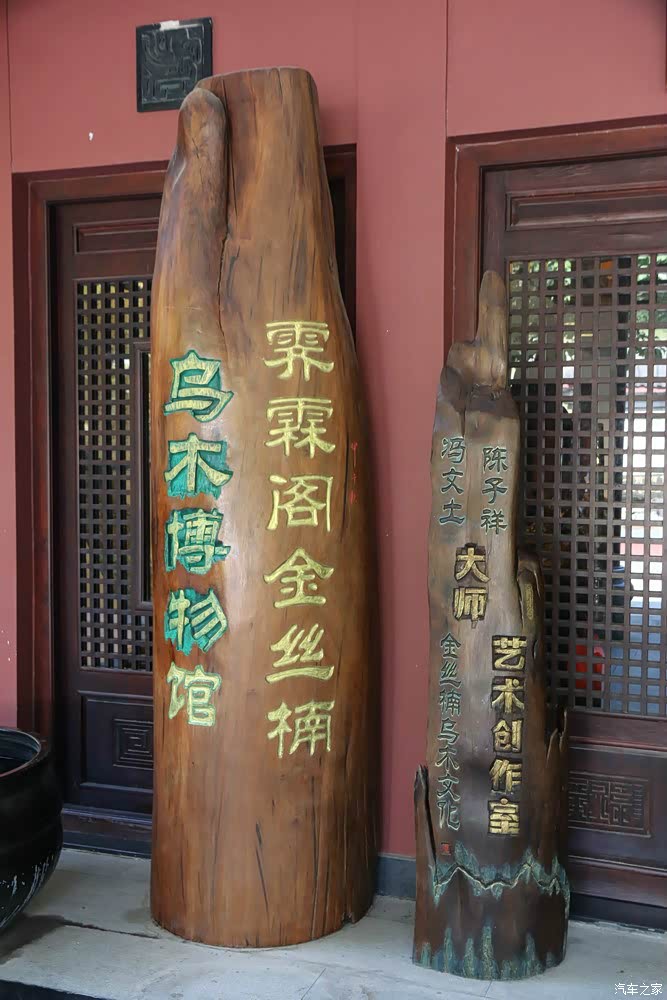 霁霖阁金丝楠
乌木博物馆
陈子祥
冯文土
大师
艺术创作室
金丝楠乌木文化
汽车之家